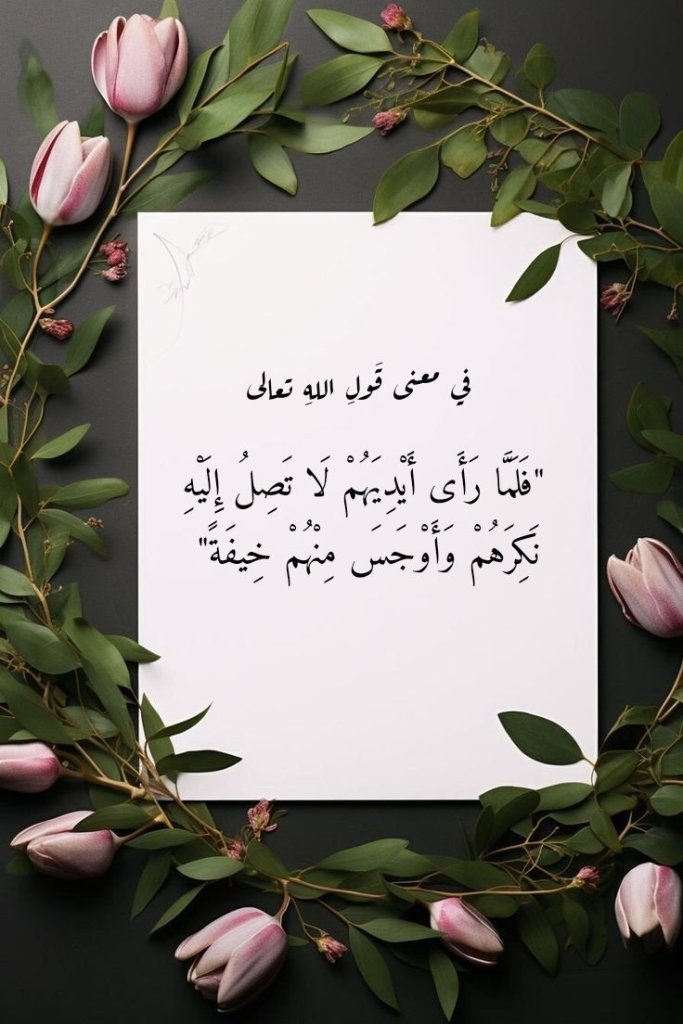 في معنى قَولِ اللهِ تعالى
"فَلَمَّا رَأَى أَيْدِيَهُمْ لَا تَصِلُ إِلَيْهِ
نَكِرَهُمْ وَأَوْجَسَ مِنْهُمْ خِيفَةً"